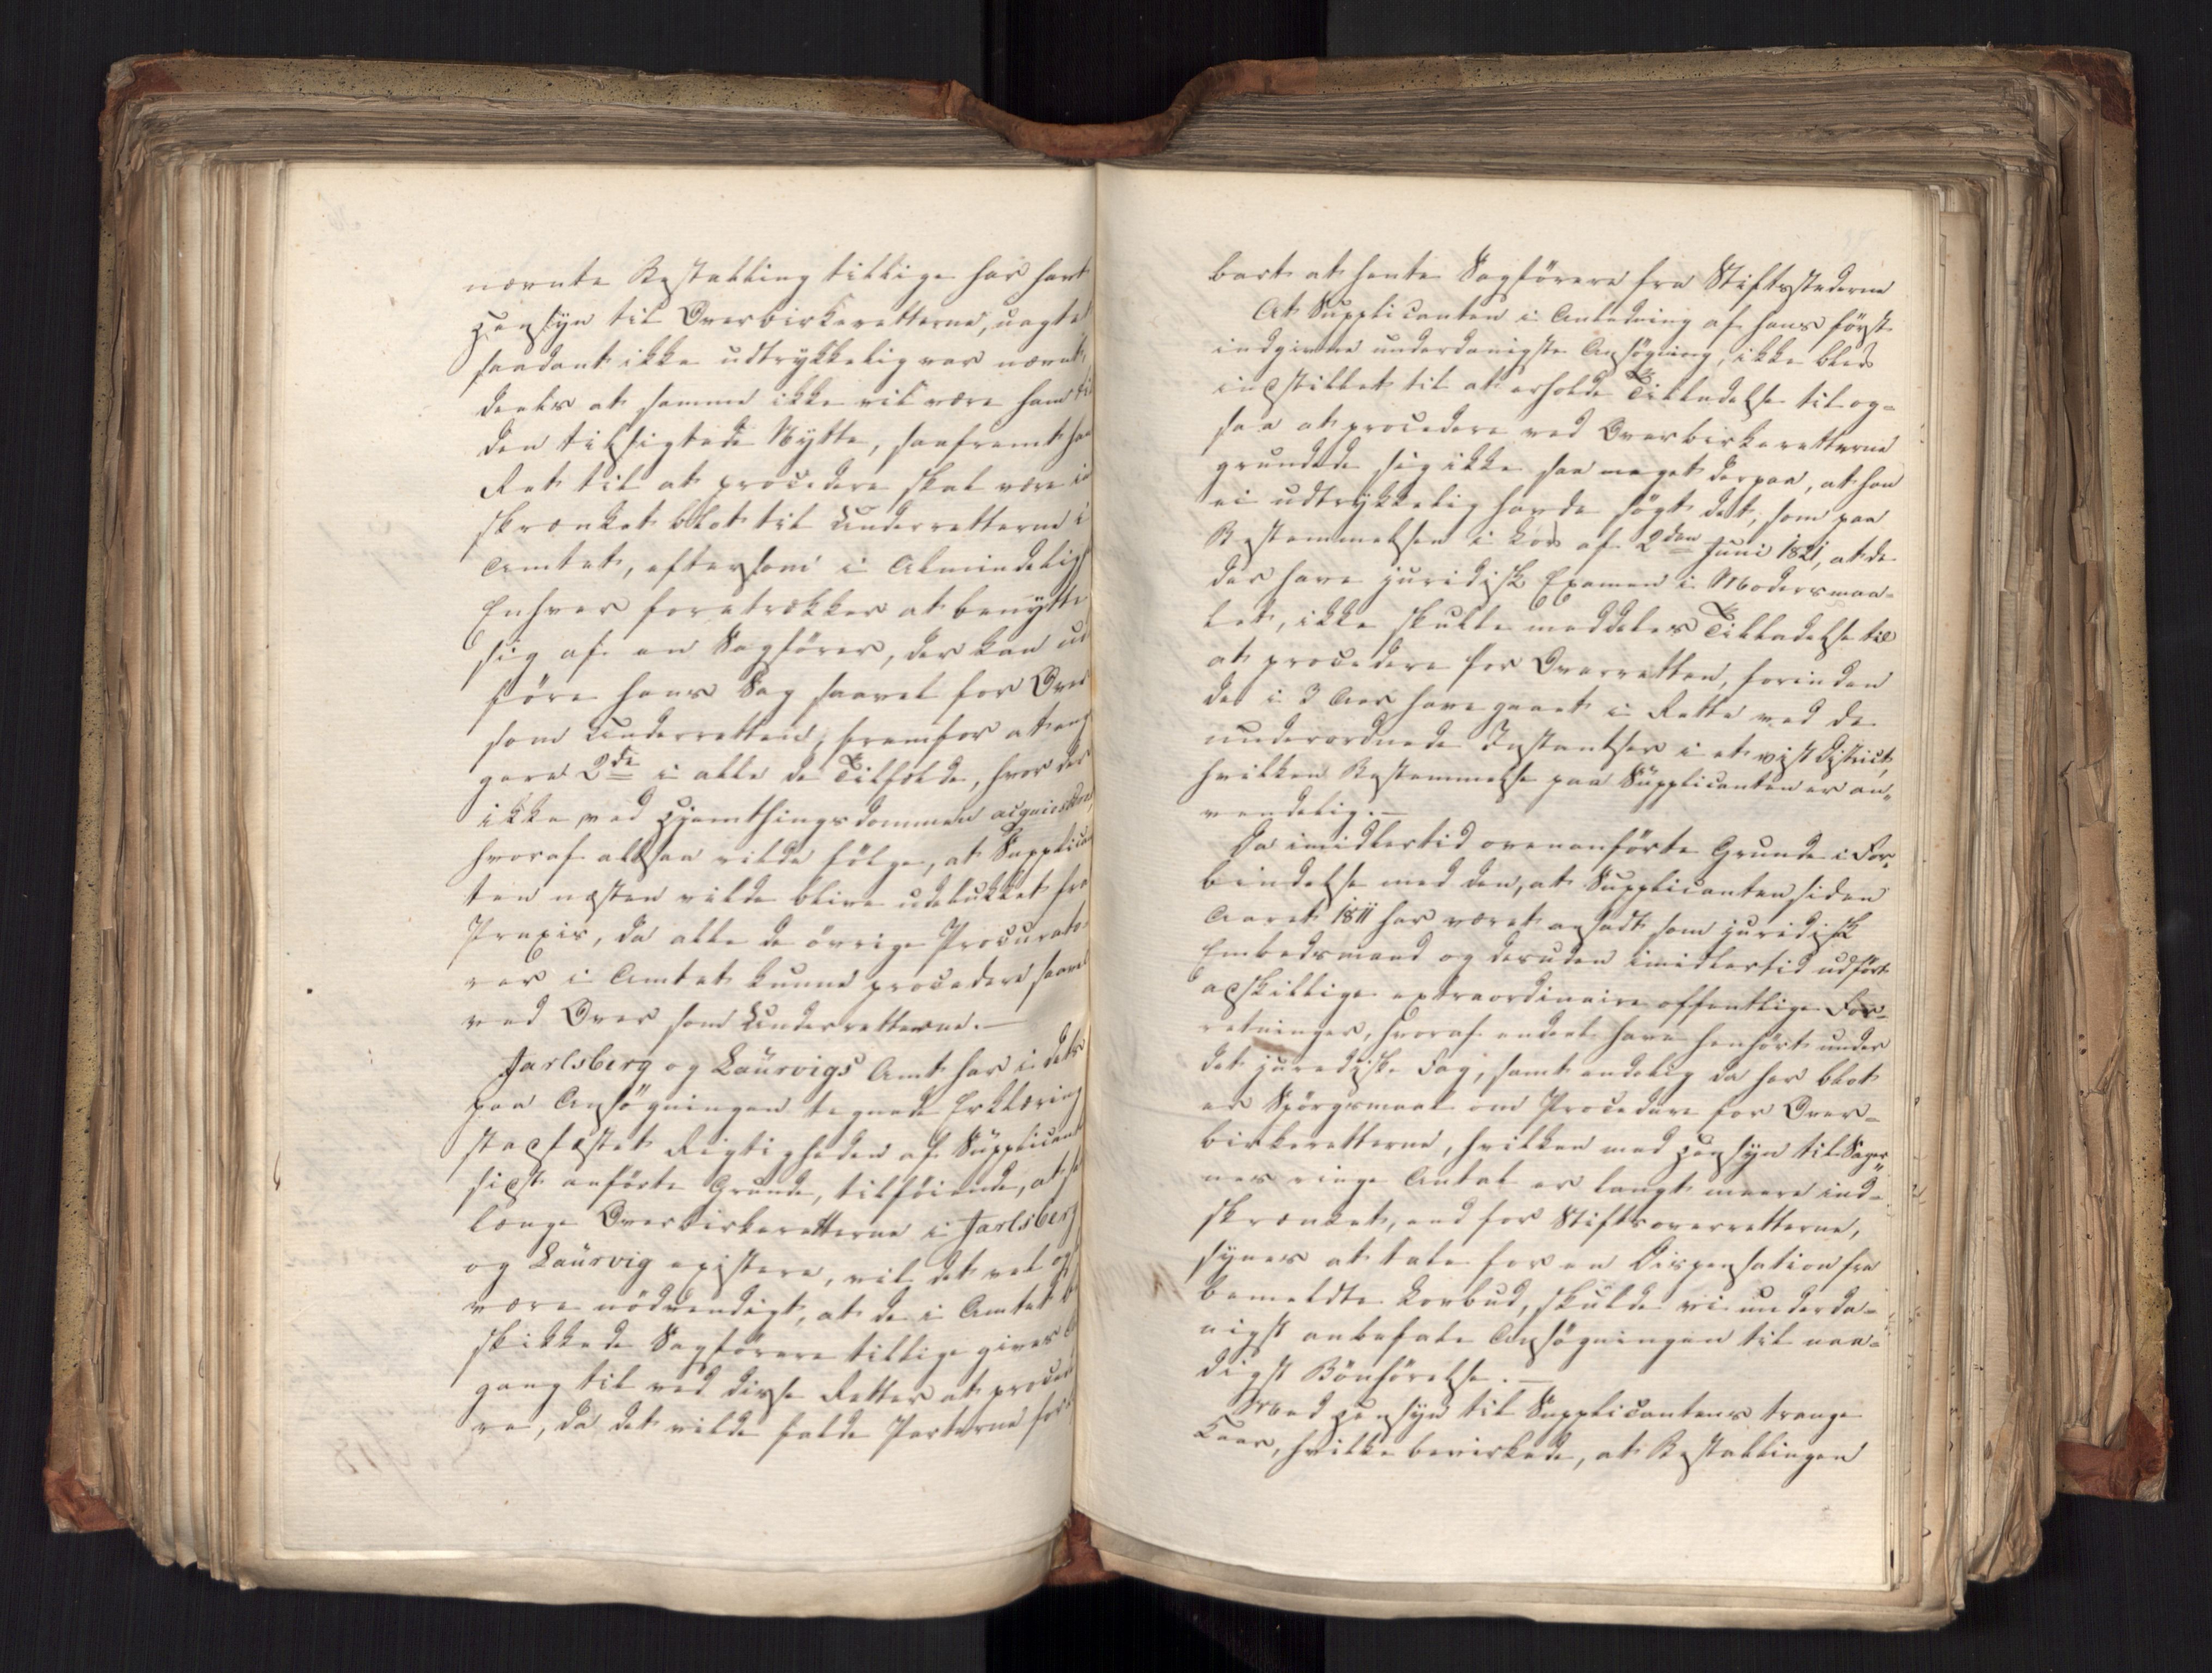 nævnte Bestalling tillige har havt
Hensyn til Overbirkeretterne, uagtet
saadant ikke udtrykkelig var nævnt,
deels at samme ikke vil være ham til
den tilsigtede Nytte, saafremt han
Ret til at procedere skal være ind
skrænket blot til Underretterne i
Amtet, eftersom i Almindelighed
Enhver foretrækker at benytte
sig af en Sagfører, der kan ud
føre hans Sag saavel for Over
som Underretten, fremfor at an
gave 2de i alle de Tilfælde, hvor der
ikke ved Hjemthingsdommen acqviesceres,
hvoraf altsaa vilde følge, at Supplican
ten næsten vilde blive udelukket fra
Praxis, da alle de øvrige Procurato
rer i Amtet kunne procedere saavel
ved Over som Underretterne.—
Jarlsberg og Laurvigs Amt har i dets
paa Ansøgningen tegnede Erklæring
stadfæstet Rigtigheden af Supplicant
sidst anførte Grunde, tilføiende, at saa
længe Overbirkeretterne i Jarlsberg
og Laurvig existere, vil det vel og
være nødvendigt, at de i Amtet be
skikkede Sagførere tillige gives Ad
gang til ved disse Retter at procede
re, da det vilde falde Parterne kost
bart at hente Sagførere fra Stiftsstæderne
At Supplicanten i Anledning af hans først
indgivne underdanigste Ansøgning, ikke blev
indstillet til at erholde Tilladelse til og-
saa at procedere ved Overbirkeretterne
grundede sig ikke saa meget derpaa, at han
ei udtrykkelig havde søgt det, som paa
Bestemmelsen i Lov af 2den Juni 1821, at de
der have juridisk Examen i Modersmaa-
let, ikke skulle meddeles Tilladelse til
at procedere for Overretten, forinden
de i 3 Aar have gaaet i Rette ved de
underordnede Instantser i et vist District,
hvilken Bestemmelse paa Supplicanten er an-
vendelig.—
Da imidlertid ovenanførte Grunde i For-
bindelse med den, at Supplicanten siden
Aaret 1811 har været ansadt som juridisk
Embedsmand og desuden imidlertid udført
adskillige extraordinaire offentlige For-
retninger, hvoraf endeel have henhørt under
det juridiske Fag, samt endelig da her blot
er Spørgsmaal om Procedure for Over-
birkeretterne, hvilken med Hensyn til Sager-
nes ringe Antal er langt meere ind-
skrænket, end for Stiftsoverretterne,
synes at tale for en Dispensation fra
bemeldte Lovbud, skulde vi underda-
nigst anbefale Ansøgningen til naa-
digst Bønhørelse.—
Med Hensyn til Supplicantens trange
Kaar, hvilke bevirkede, at Bestallingen